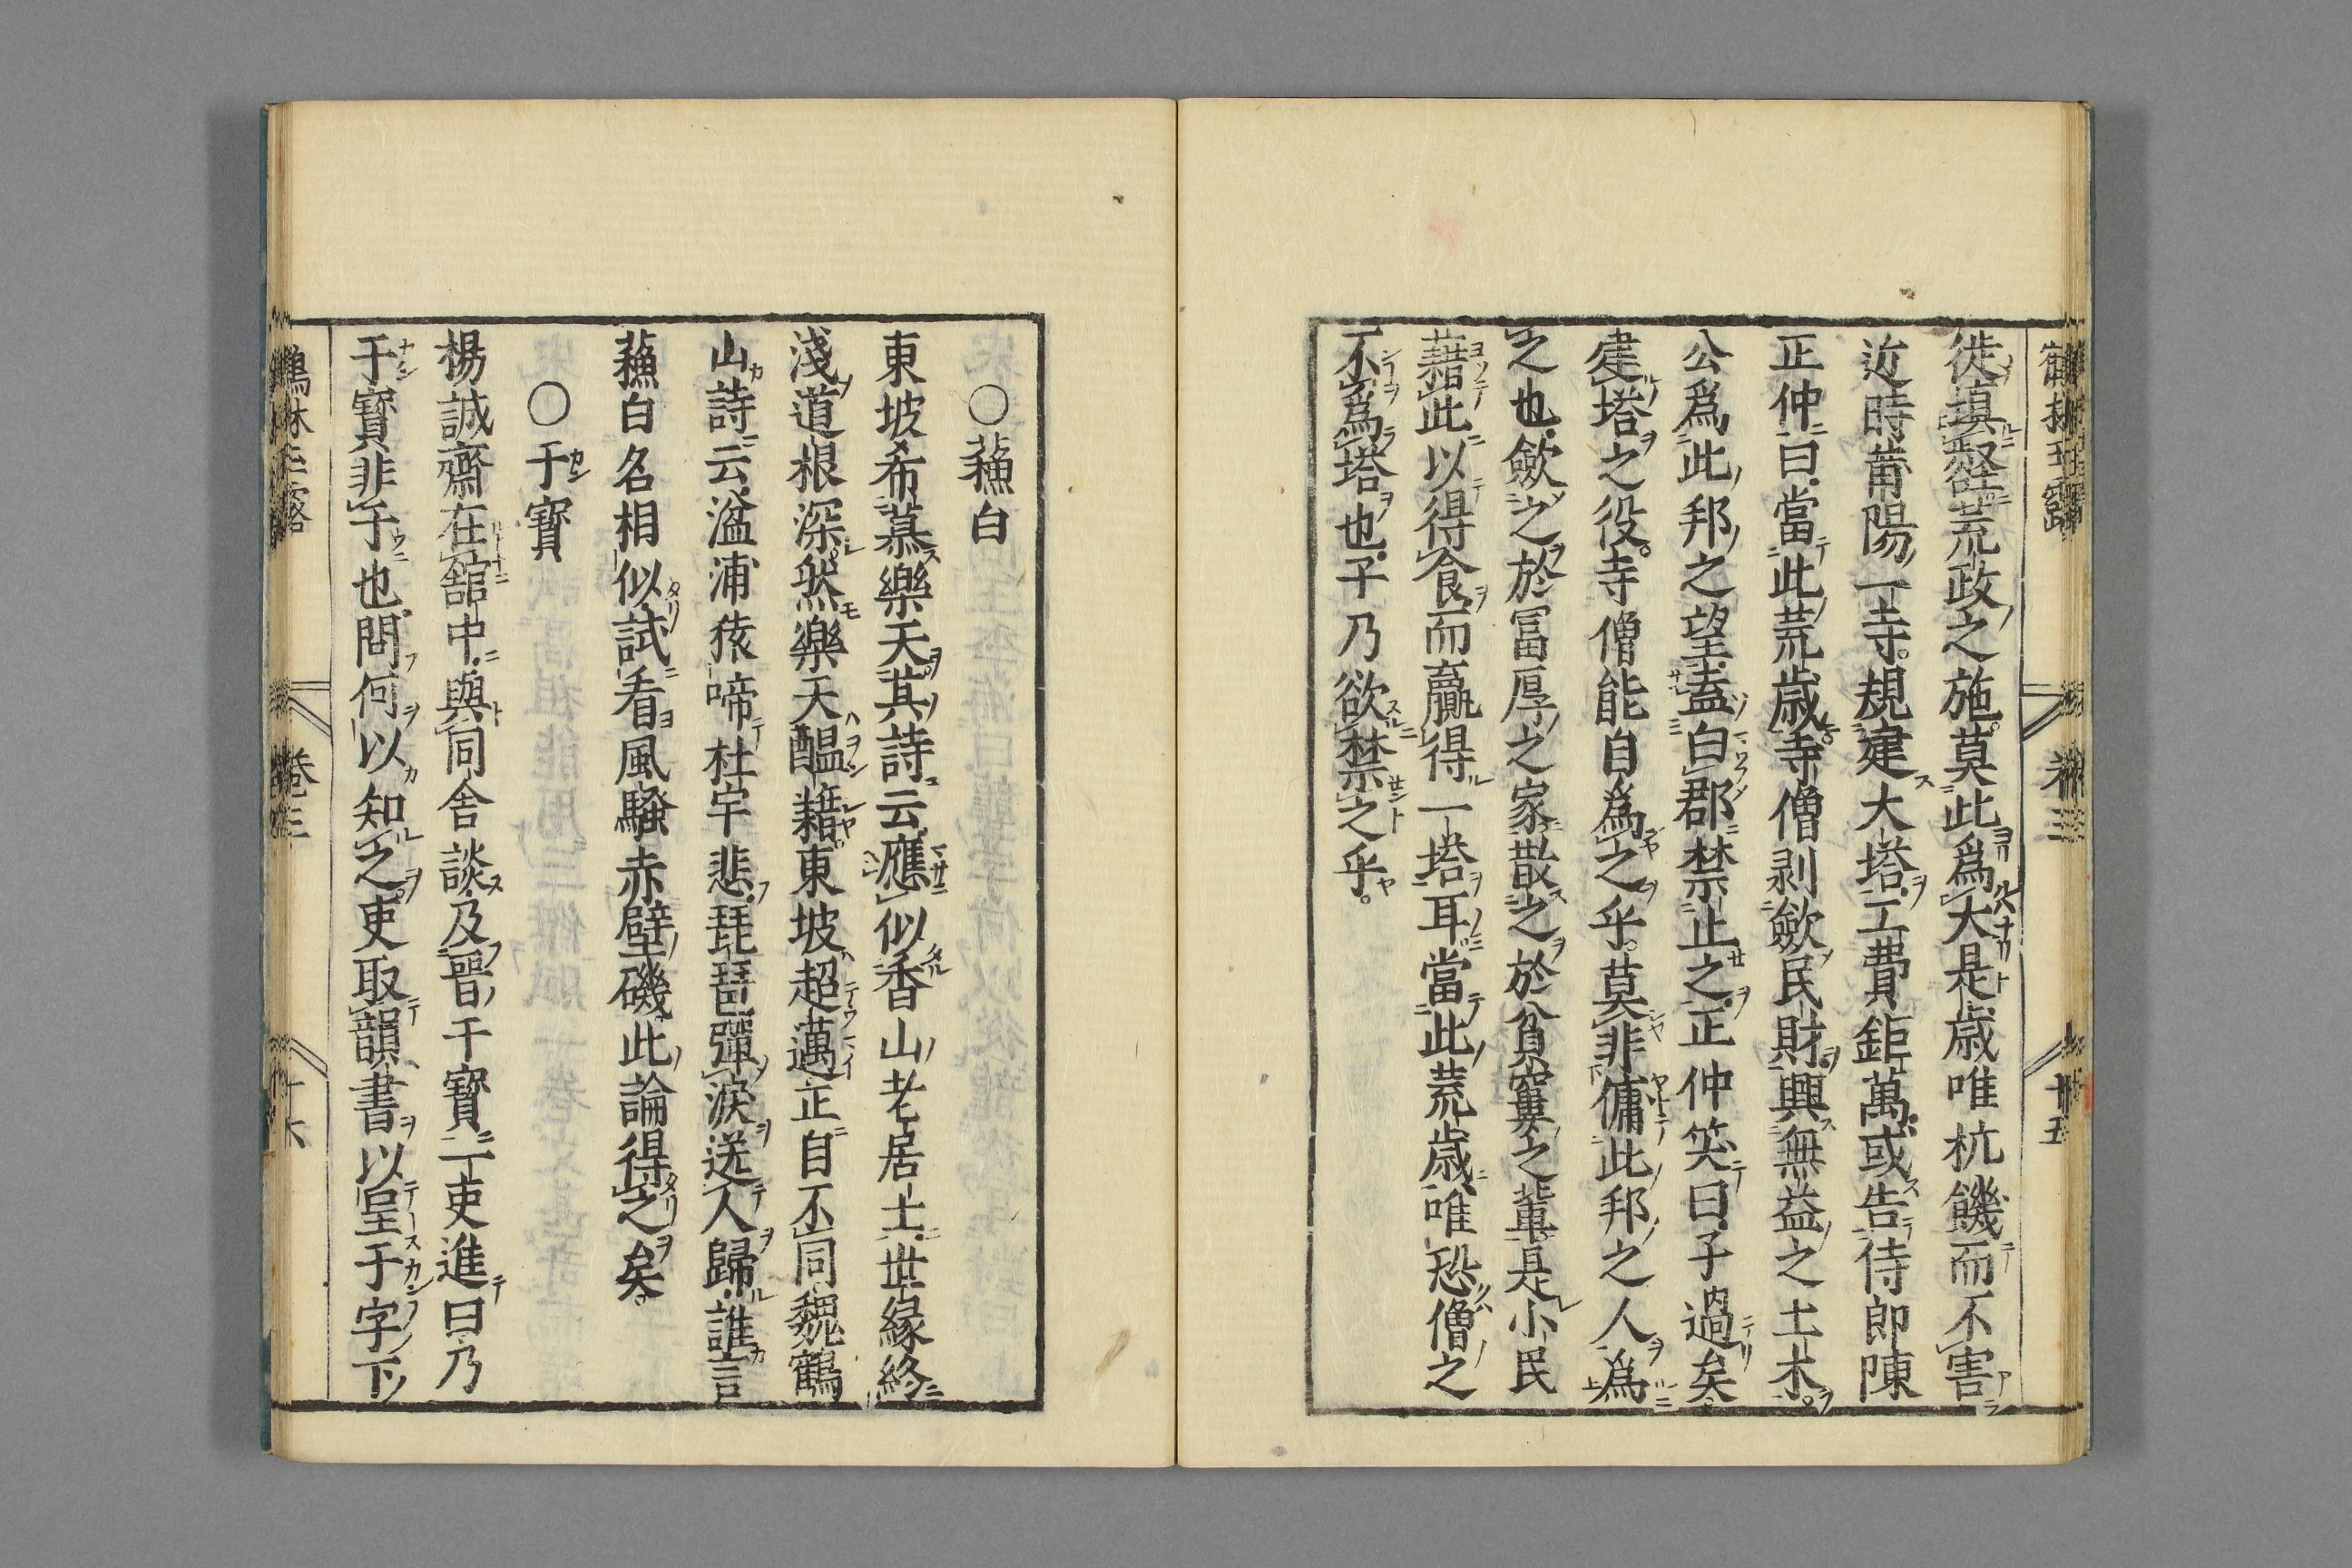 徙塡壑荒政之施莫此爲大是歳唯杭饑而不害
近時莆陽一寺規建大塔工費鉅萬或告侍郎陳
正仲曰當此荒歳寺僧剥歛民財興無益之土木
公爲此邦之望盍白郡禁止之正仲笑曰子過矣
建塔之役寺僧能自爲之乎莫非傭此邦之人爲
之也歛之於冨厚之家散之於貧窶之輩是小民
藉此以得食而贏得一塔耳當此荒歳唯恐僧之
不爲塔也子乃欲禁之乎
鶴林玉露 卷三 十五
○蘓白
東坡希慕樂天其詩云應似香山老居士世縁終
淺道根深然樂天醖藉東坡超邁正自不同魏鶴
山詩云湓浦猿啼杜宇悲琵琶彈淚送人歸誰言
蘓白名相似試看風騷赤壁磯此論得之矣
○于寳
楊誠齋在舘中與同舍談及晉于寳一吏進曰乃
干寳非于也問何以知之吏取韻書以呈于字下
鶴林玉露 卷三 十六